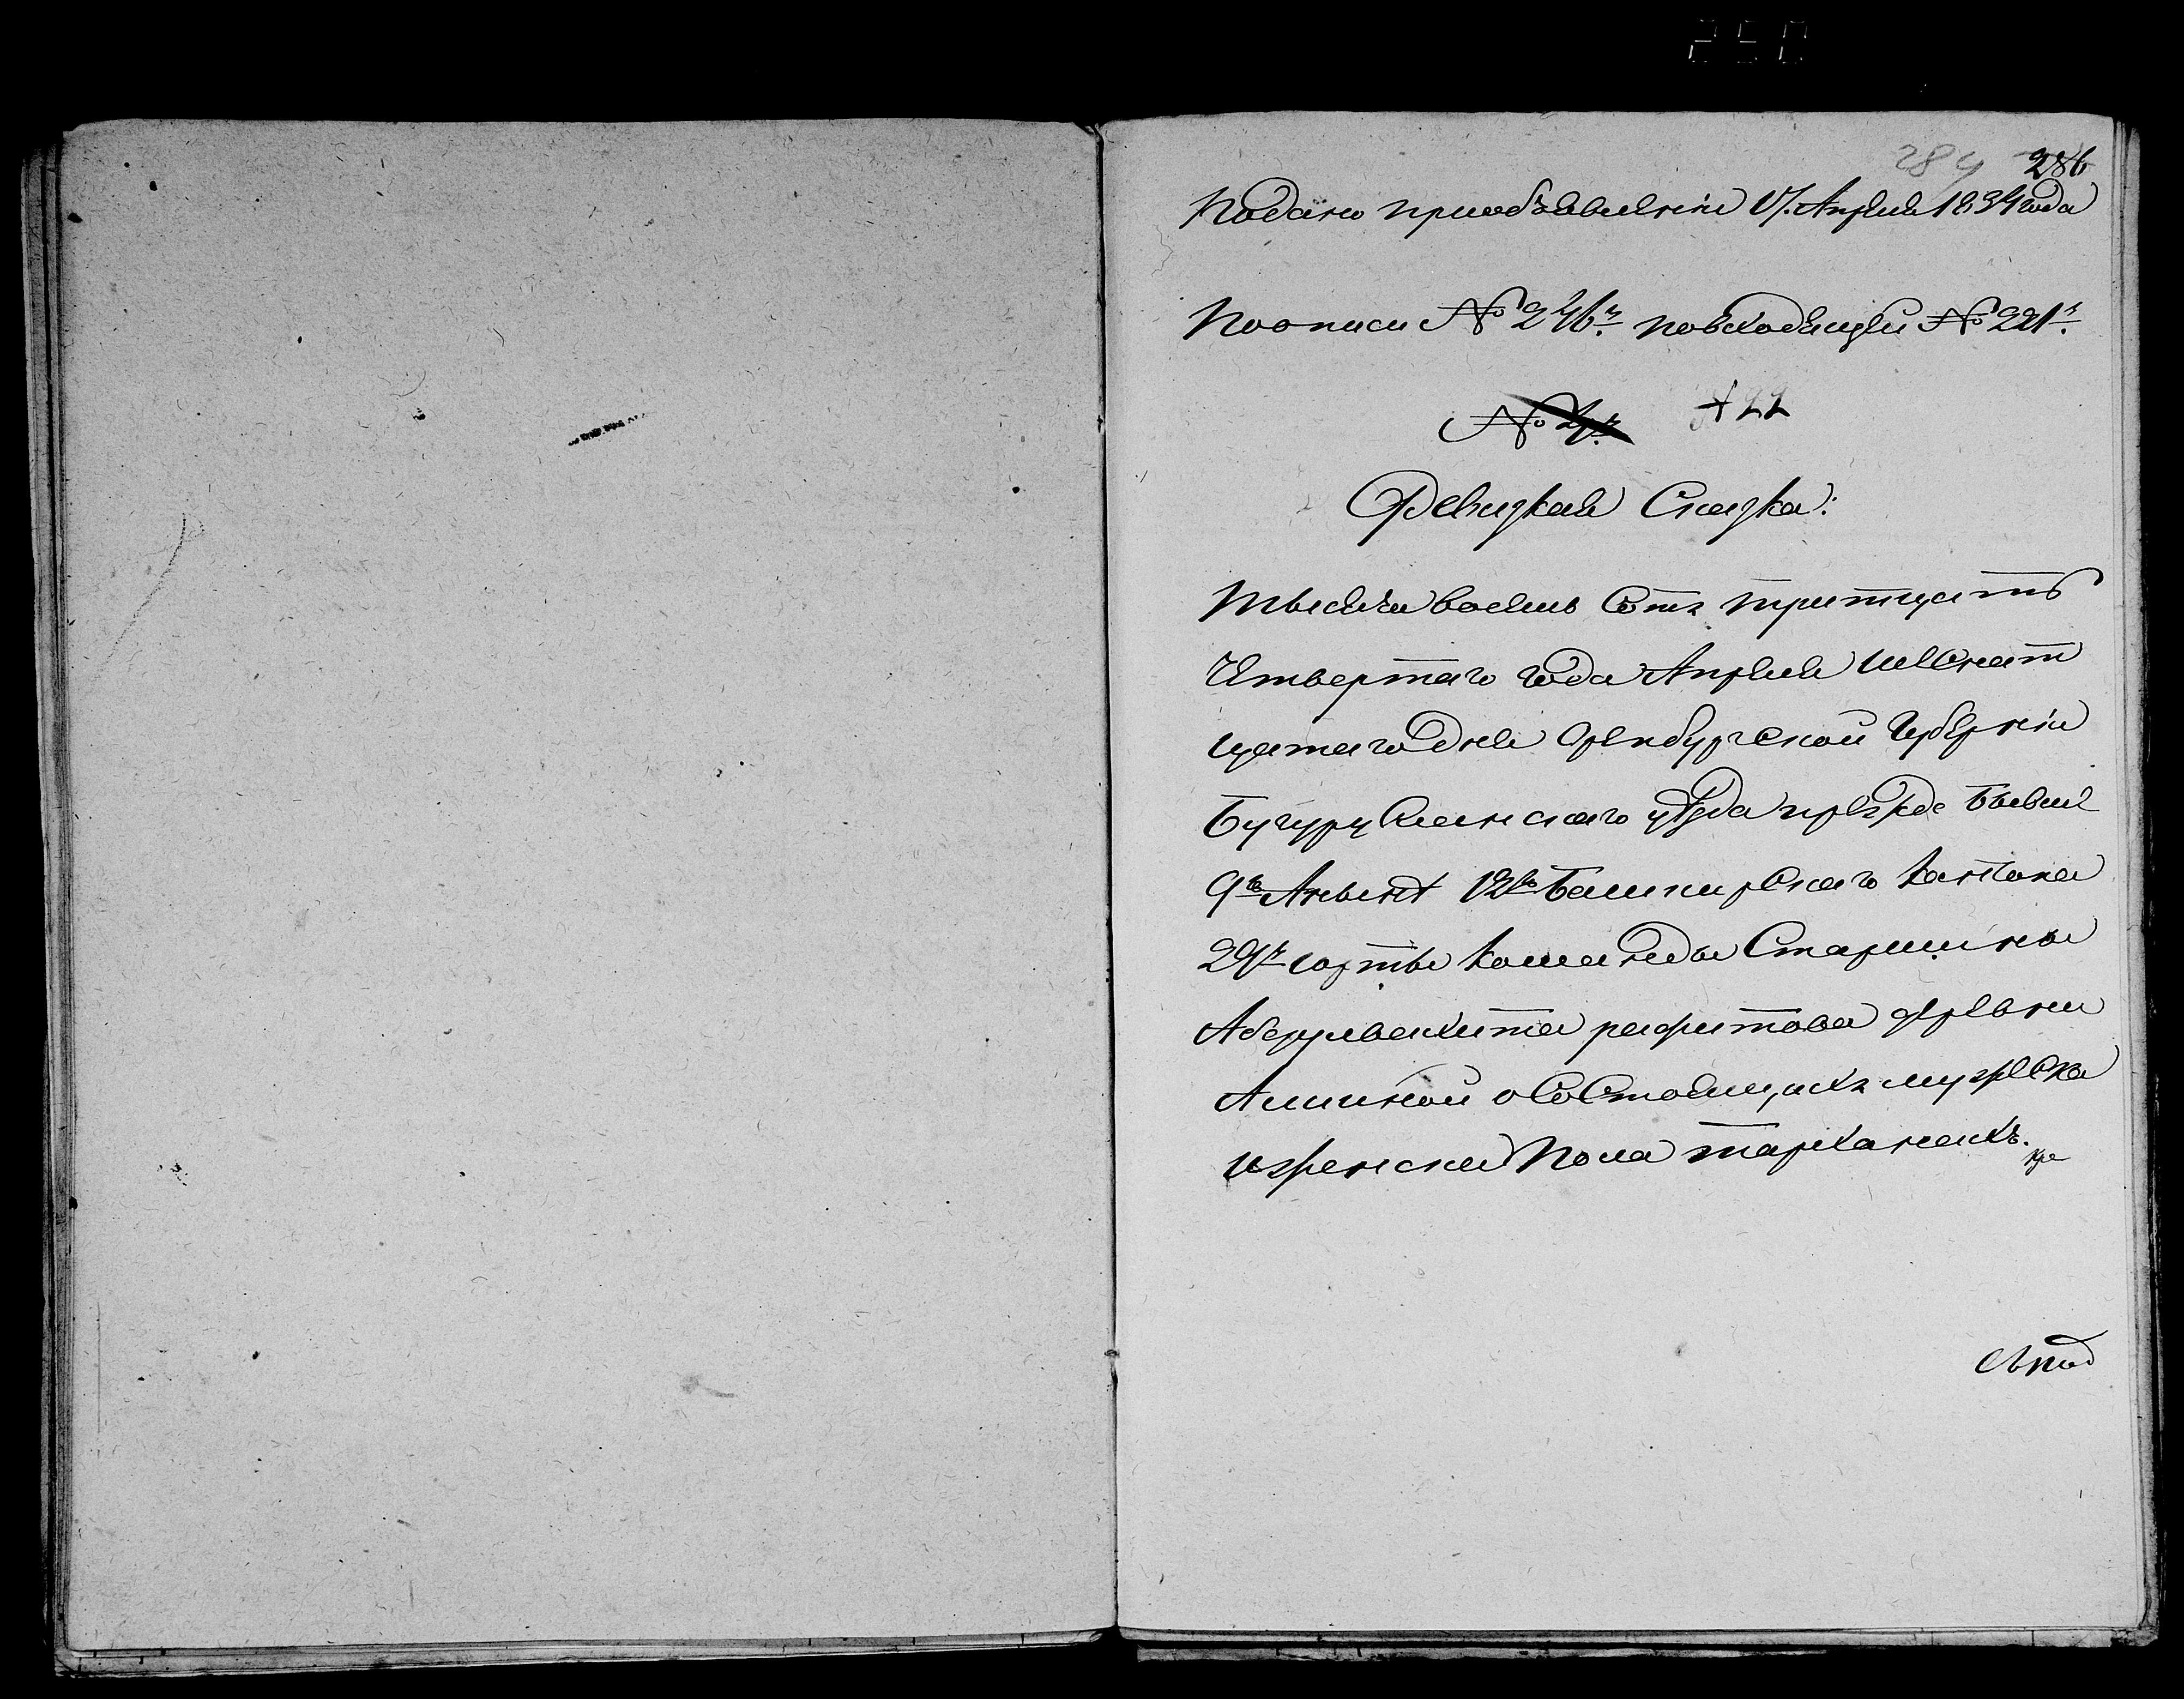 250
284 286
Подано приобъявленіи 17. Апреля 1834 года
Поописи № 246й. повходящей № 221й.
122
Ревизкая Сказка:
Тысяча восемь Сотъ тритцать
Четвертаго года Апреля шеснат
цатаго дня Оренбургской Губерніи
Бугурусланскаго уѣзда прежде бывш
9го Аныне 12го Башкирскаго Кантона
29й юрты команды Старшины
рафитова деревни
Аминкой оСостоящихъ мужеска
иженска Пола тарханахъ.